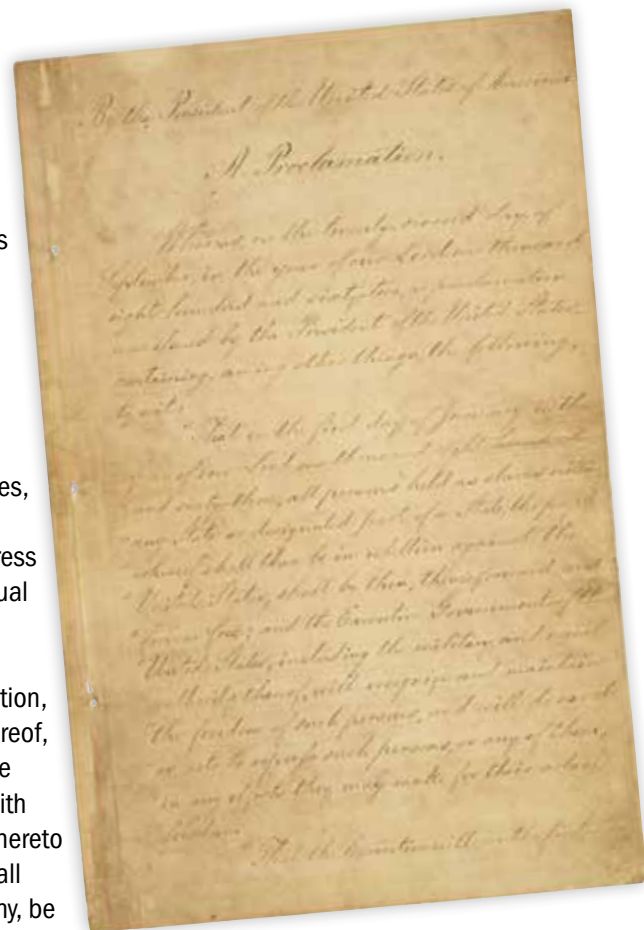 s
es,
ress
ual
tion,
reof,
e
ith
hereto
all
ny, be
By the President of the United States of America
A Proclamation.
Whereas, on the twenty second day of
September, in the year of our Lord one thousand
eight hundred and sixty two, a proclamation
was issued by the President of the United States,
containing, among other things, the following,
to wit:
"That on the first day of January, in the
year of our Lord one thousand eight hundred
and sixty-three, all persons held as slaves within
any State or designated part of a State, the people
whereof shall then be in rebellion against the
United States, shall be then, thenceforward, and
forever free; and the Executive Government of the
United States, including the military and naval
authority thereof, will recognize and maintain
the freedom of such persons, and will do no act
or acts to repress such persons, or any of them,
in any efforts they may make for their actual
freedom.
"That the Executive will, on the first